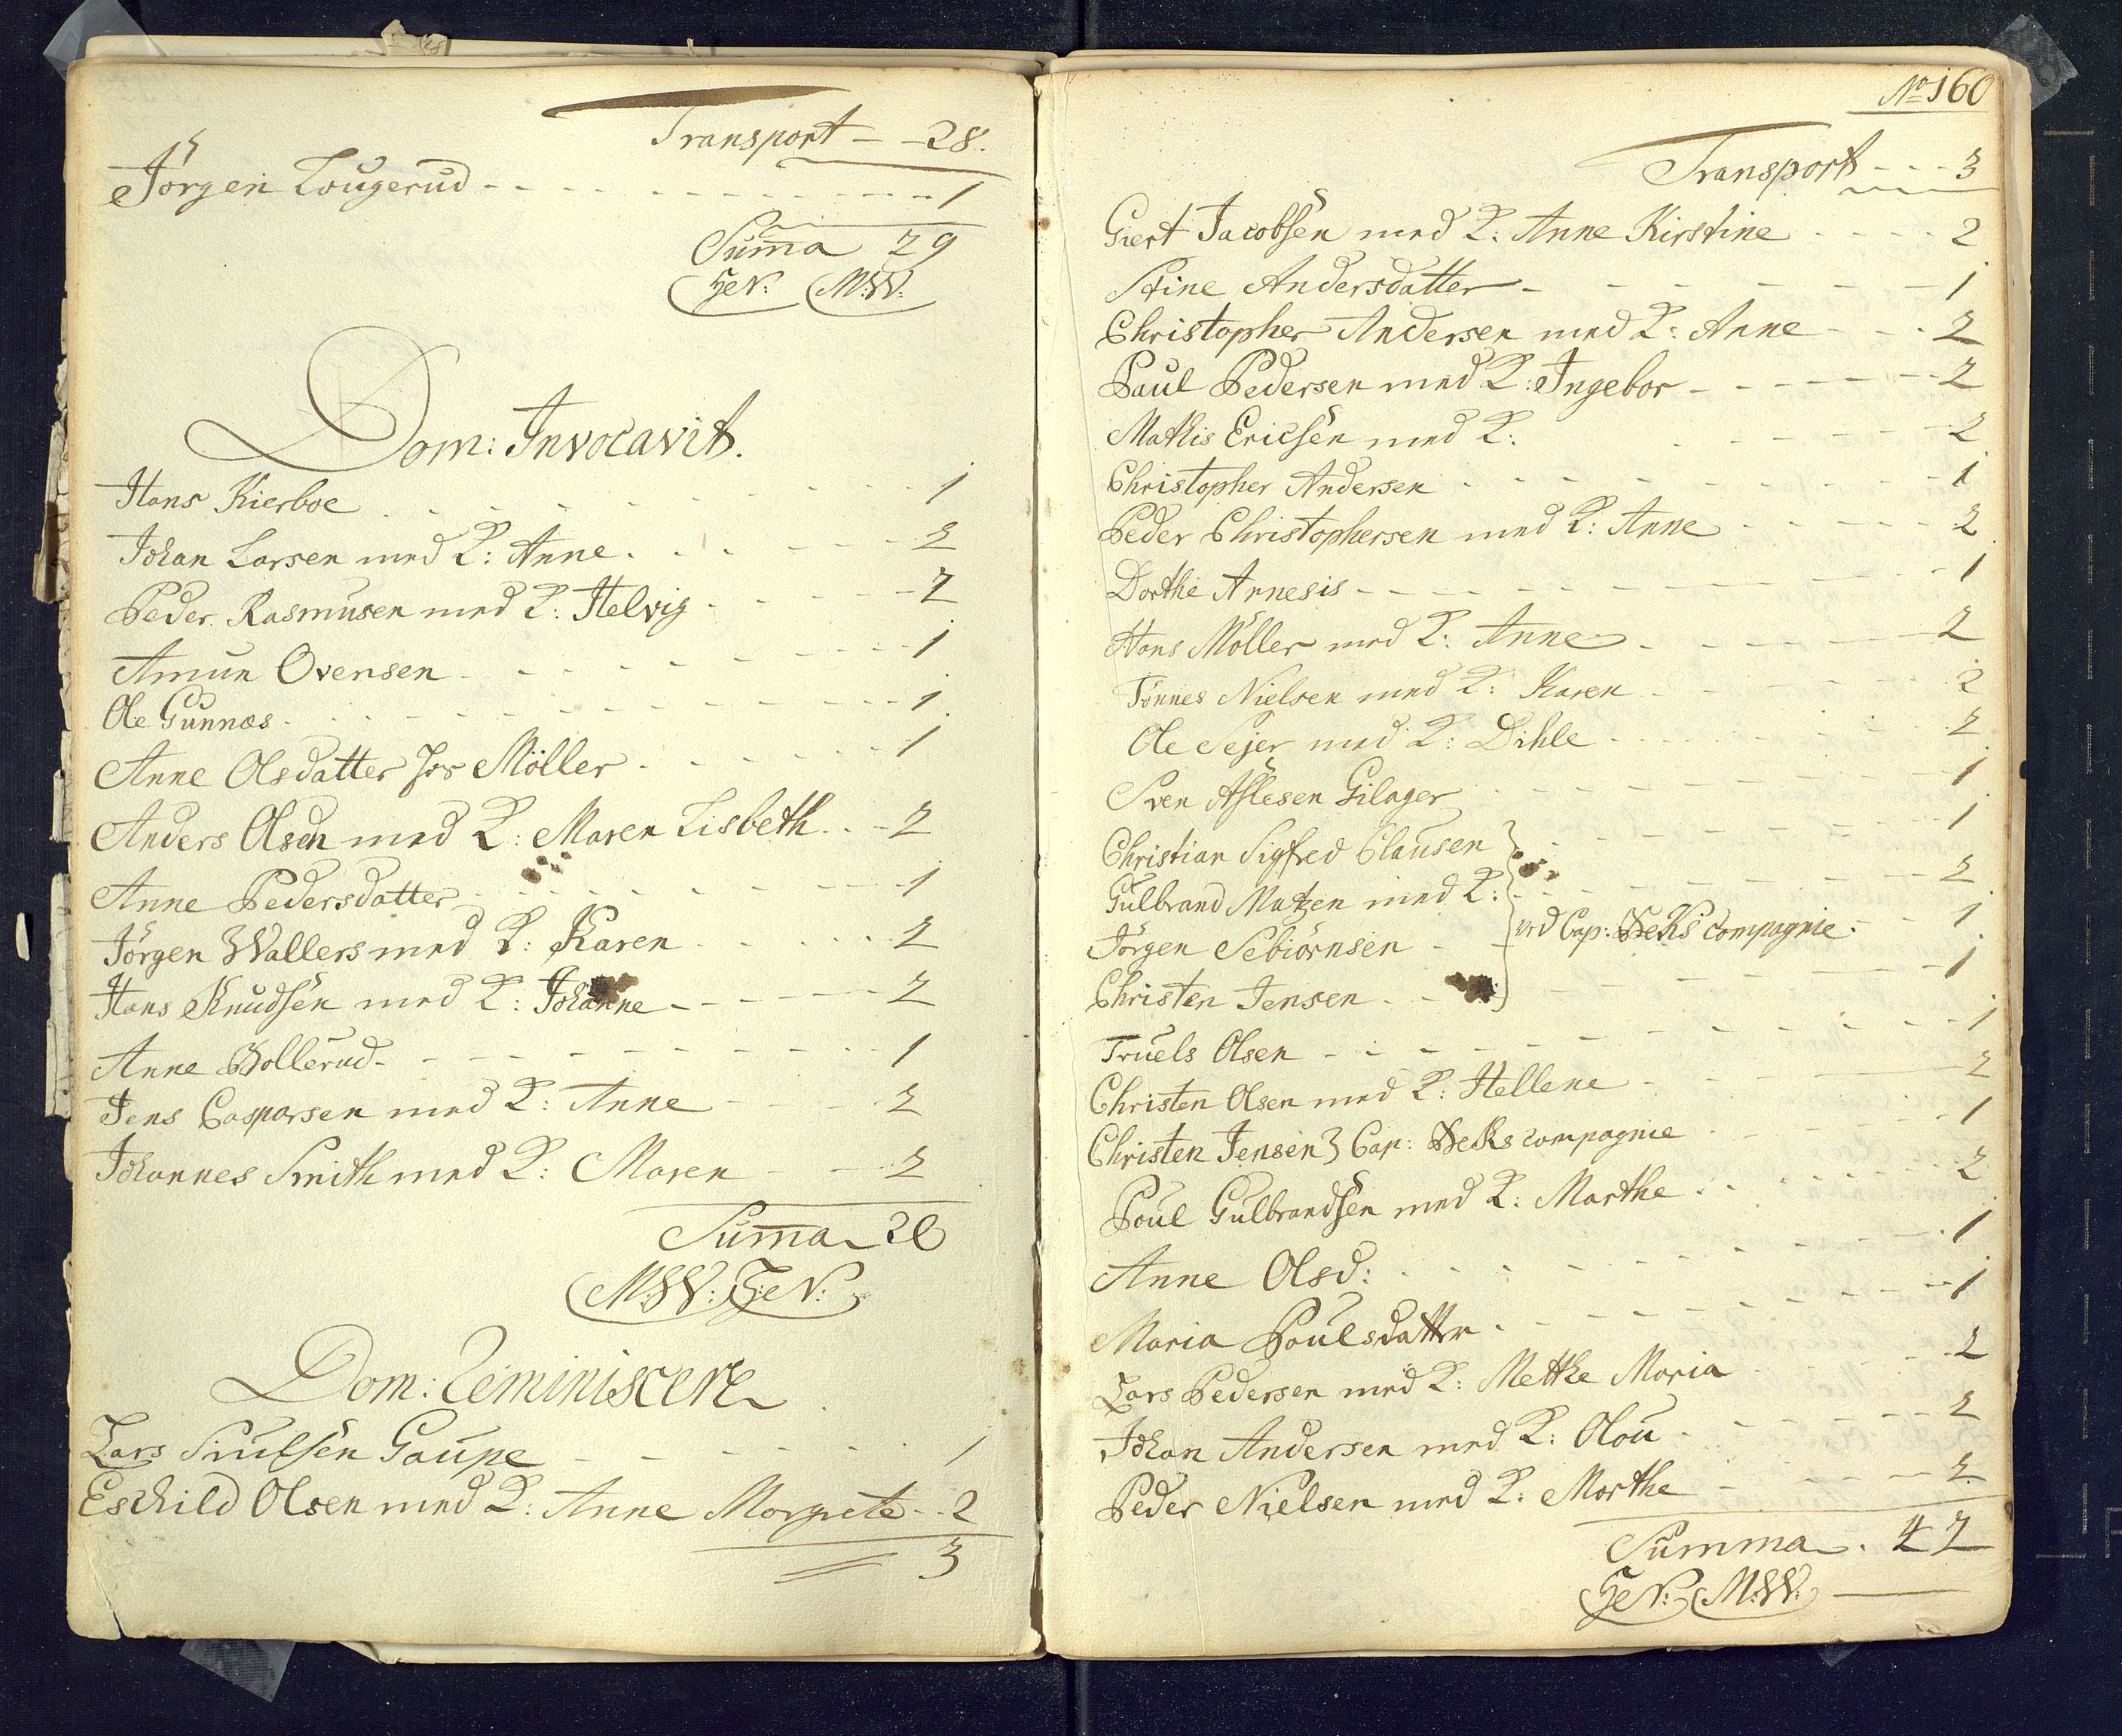 Transport - - 28.
Jörgen Lougerud - - - - - - - - - 1
Suma 29
HeN: M:W:
Dom: Invocavit.
Hans Kierboe - - - - - - 1
Johan Larsen med K: Anne - - - - - - 2
Peder Rasmusen med K: Helvig - - - - - 2
Amun Ovensen - - - - - - - - 1
Ole Gunnæs - - - - - - - - - 1
Anne Olsdatter hos Möller - - - - - 1
Anders Olsen med K: Maren Lisbeth - - 2
Anne Pedersdatter - - - - - - - - 1
Jörgen Wallers med K: Karen - - - - - 2
Hans Knudsen med K: Johanne - - - - - 2
Anne Bollerud - - - - - - - - - 1
Jens Casparsen med K: Anne - - - - 2
Johannes Smith med K: Maren - - - 2
Suma 20
M:W: HeN:
Dom: Reminiscere
Lars Siulsen Gaupe - - - - - - 1
Eschild Olsen med K: Anne Margrete - - 2
3
No 160
Transport - - - 3
Giert Jacobsen med K: Anne Kirstine - - - - 2
Stine Andersdatter - - - - - - - 1
Christopher Andersen med K: Anne - - - 2
Paul Pedersen med K: Ingebor - - - - - - 2
Mathis Ericsen med K: - - - - - - 2
Christopher Andersen - - - - - - - - - 1
Peder Christophersen med K: Anne - - - - - 2
Dorthe Arnesis - - - - - - - - - 1
Hans Möller med K: Anne - - - - - - 2
Tönnes Nielsen med K: Karen - - - - - - 2
Ole Sejer med K: Dihle - - - - - - - 2
Sven Aslesen Gilager - - - - - - - 1
Christian Sigfred Clausen } - - - - - - 1
Gulbrand Matzen med K: - - - - - - - 2
Jörgen Sebiörnsen - - ved Cap: Heks compagnie - - 1
Christen Jensen - - - - - - - 1
Truels Olsen - - - - - - - - - 1
Christen Olsen med K: Hellene - - - - 2
Christen Jensen } Cap: Heks compagnie - - - - 1
Poul Gulbrandsen med K: Marthe - - - - - - 2
Anne Olsd: - - - - - - - - - 1
Maria Poulsdatter - - - - - - - - 1
Lars Pedersen med K: Mette Maria - - - - - 2
Johan Andersen med K: Olou - - - - - - 2
Peder Nielsen med K: Marthe - - - - - 2
Summa . 42
HeN: M:W: